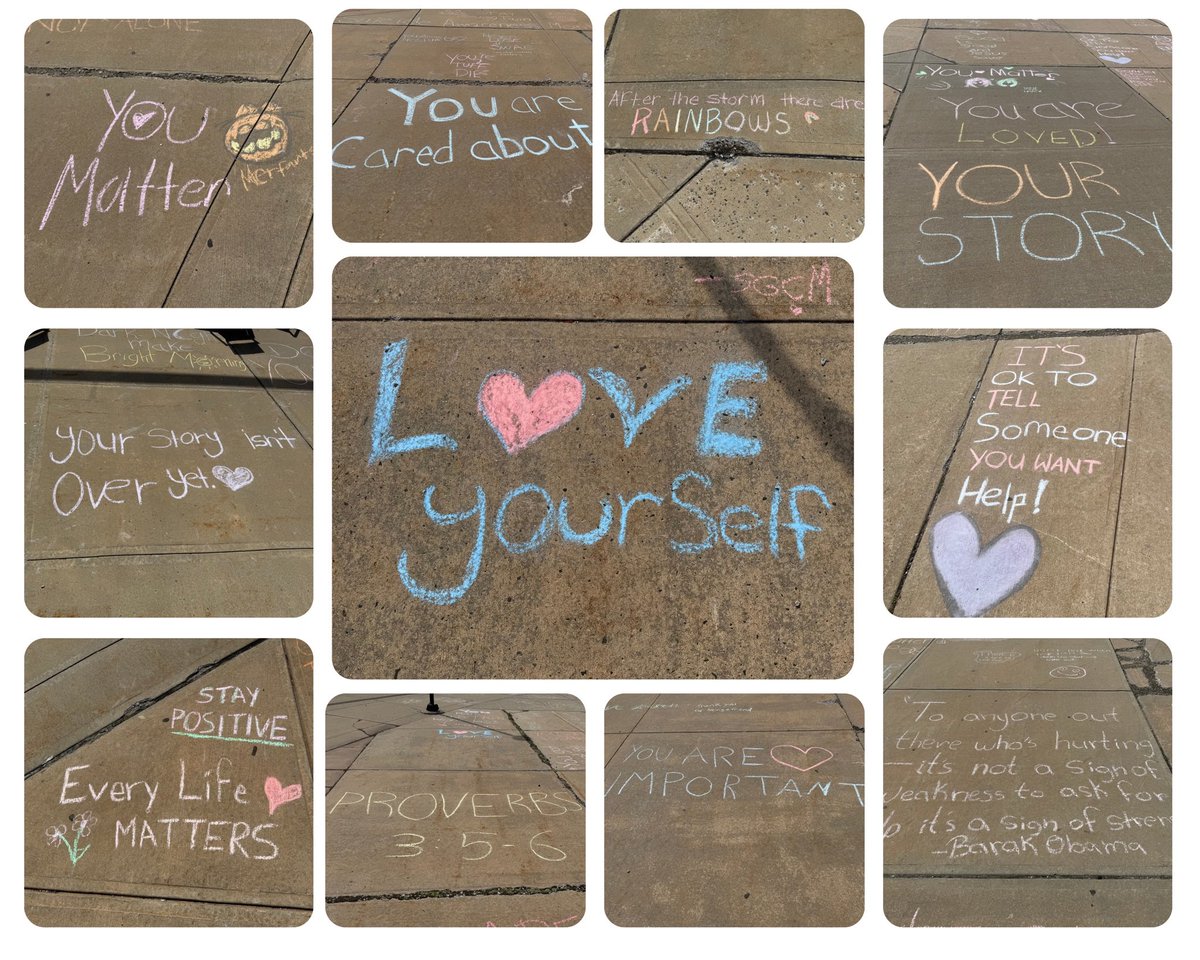 NOT ALONE
YOU
Matter
YOU'RE
TUFF
DIE
You are
Cared about
After the storm there are
RAINBOWS
You Matter
You are
LOVED!
YOUR
STORY
make
Bright
your Story isn't
Over yet.
SGCM
LOVE
yourself
IT'S
OK TO
TELL
Someone
YOU WANT
Help!
STAY
POSITIVE
Every Life
MATTERS
LOVE
yourself
PROVERBS
3:5-6
YOU ARE
IMPORTANT
"To anyone out
there who's hurting
—it's not a Sign of
weakness to ask for
it's a Sign of
-Barak Obama